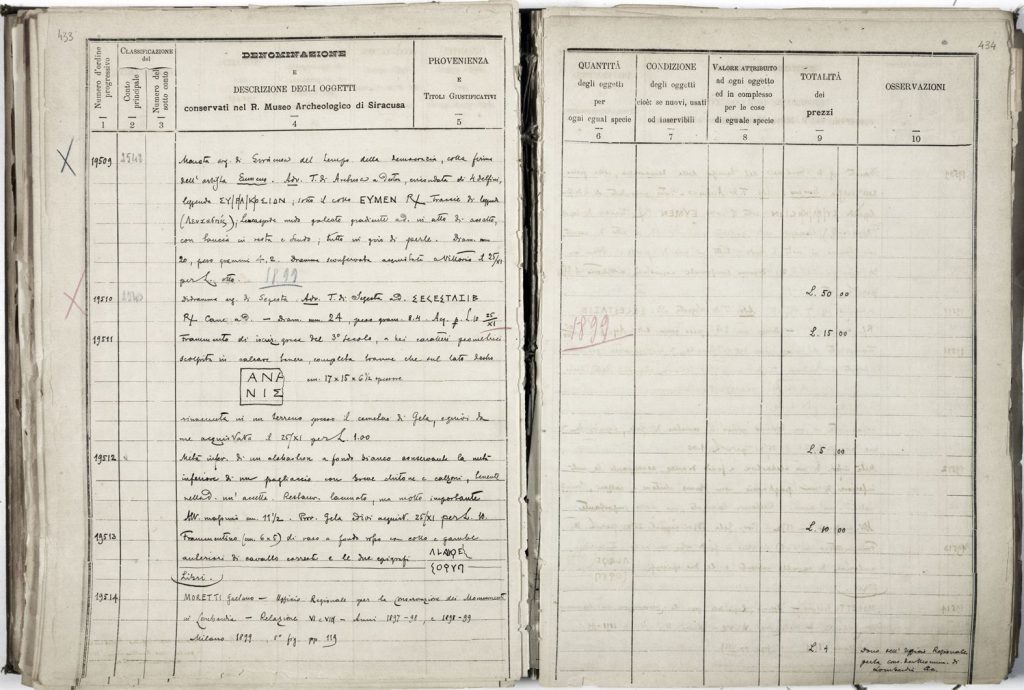 433
Numero d'ordine progressivo
CLASSIFICAZIONE del
Conto principale
Numero del sotto conto
DENOMINAZIONE
E
DESCRIZIONE DEGLI OGGETTI
conservati nel R. Museo Archeologico di Siracusa
PROVENIENZA
E
TITOLI GIUSTIFICATIVI
1 2 3 4 5
19509 2542 Moneta arg. di Siracusa del tempo della democrazia, colla firma
dell'artista Eumenes. Adv. T. di Aretusa a destra, circondata di 4 delfini,
leggenda ΣΥ/ΡΑ/ΚΟΣΙΟΝ; sotto il collo EYMEN Rx Traccie di leggenda
nudo galeato gradiente ad. in atto di assalto,
con lancia in resta e scudo; tutto in giro di perle. Diam. mm
20, peso grammi 4.2. Dramma acquistata a Vittoria il 25/XI
per L. otto. 1899
19510 Didramma arg. di Segesta. Adv. T. di Segesta a D.
Rx Cane a D. — Diam. mm. 24, peso gram. 8.4. Acq. p. L. 10 25/XI
19511 Frammento di iscriz. greca del 3° secolo, a bei caratteri geometrici
scolpita in calcare tenero, completa tranne che sul lato destro
ΑΝΑ
ΝΙΣ
cm. 17 x 15 x 6 1/2 spessore
rinvenuta in un terreno presso il cimitero di Gela, e quivi da
me acquistato il 25/XI per L. 1.00
19512 Metà infer. di un alabastron a fondo bianco conservante la metà
inferiore di un pagliaccio con breve chitone e calzoni, tenente
nella D. un' accetta. Restaur. lacunato, ma molto importante
Alt. massima cm. 11 1/2. Prov. Gela ed ivi acquist. 25/XI per L. 10.
19513 Frammentino (cm. 6 x 5) di vaso a fondo rosso con collo e gambe
anteriori di cavallo corrente e le due epigrafi
Libri.
19514 MORETTI Gaetano — Ufficio Regionale per la Conservazione dei Monumenti
in Lombardia — Relazione VI e VII — Anni 1897-98, e 1898-99
Milano 1899, 8° fig. pp. 119
434
QUANTITÀ
degli oggetti
per
ogni egual specie
CONDIZIONE
degli oggetti
cioè: se nuovi, usati
od inservibili
VALORE ATTRIBUITO
ad ogni oggetto
od in complesso
per le cose
di eguale specie
TOTALITÀ
dei
prezzi
OSSERVAZIONI
6 7 8 9 10
L. 50 00
1899
L. 15 00
L. 5 00
L. 10 00
L. 4
Dono dell' Ufficio Regionale